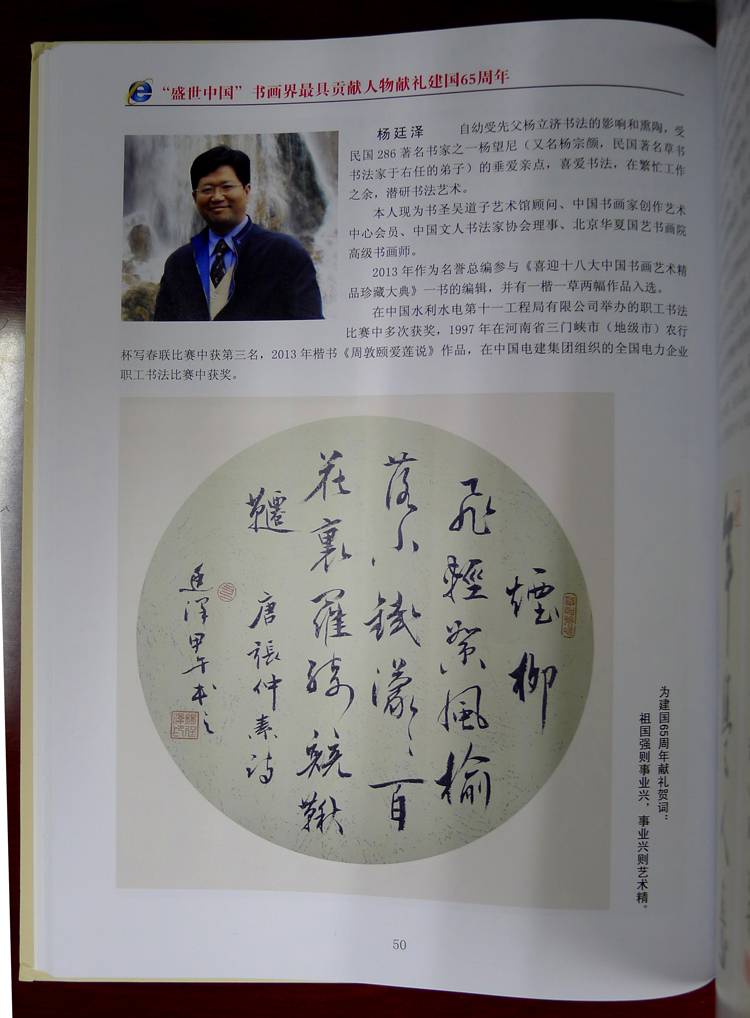 “盛世中国”书画界最具贡献人物献礼建国65周年
杨廷泽 自幼受先父杨立济书法的影响和熏陶，受
民国 286 著名书家之一杨望尼（又名杨宗颜，民国著名草书
书法家于右任的弟子）的垂爱亲点，喜爱书法，在繁忙工作
之余，潜研书法艺术。
本人现为书圣吴道子艺术馆顾问、中国书画家创作艺术
中心会员、中国文人书法家协会理事、北京华夏国艺书画院
高级书画师。
2013 年作为名誉总编参与《喜迎十八大中国书画艺术精
品珍藏大典》一书的编辑，并有一楷一草两幅作品入选。
在中国水利水电第十一工程局有限公司举办的职工书法
比赛中多次获奖，1997 年在河南省三门峡市（地级市）农行
杯写春联比赛中获第三名，2013 年楷书《周敦颐爱莲说》作品，在中国电建集团组织的全国电力企业
职工书法比赛中获奖。
煙柳
飛輕絮風榆
落小錢濛〻百
花裏羅綺競鞦
韆
唐張仲素詩
廷澤甲午春之
为建国65周年献礼贺词：
祖国强则事业兴，事业兴则艺术精。
50